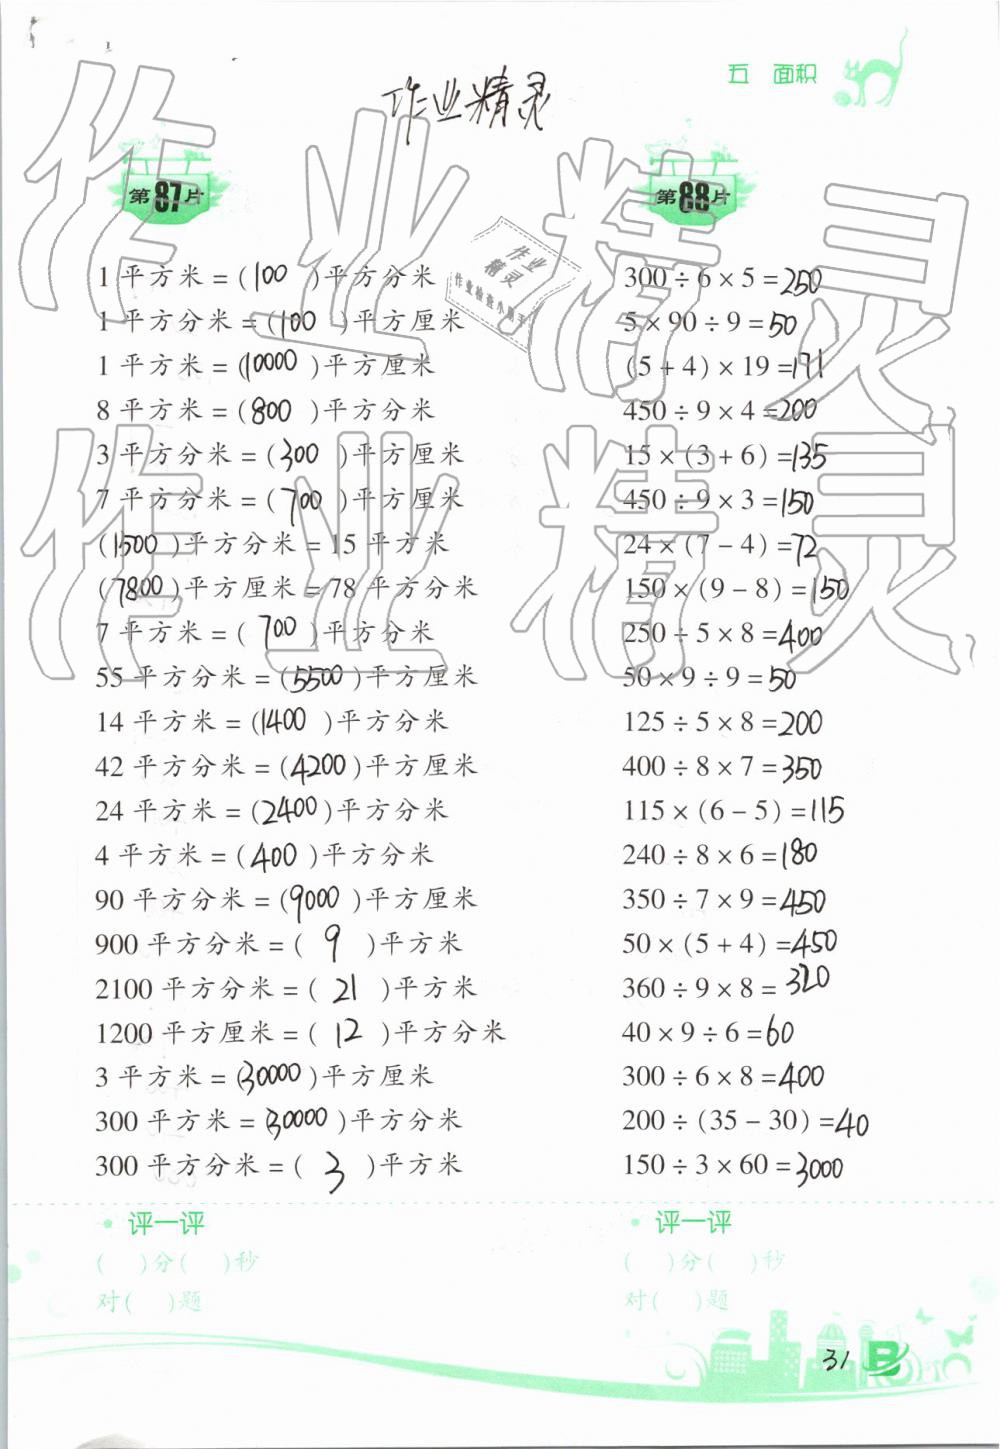 五 面积
作业精灵
第87片
1平方米=(100)平方分米
1平方分米=(100)平方厘米
1平方米=(10000)平方厘米
8平方米=(800)平方分米
3平方分米=(300)平方厘米
7平方分米=(700)平方厘米
(1500)平方分米=15平方米
(7800)平方厘米=78平方分米
7平方米=(700)平方分米
55平方分米=(5500)平方厘米
14平方米=(1400)平方分米
42平方分米=(4200)平方厘米
24平方米=(2400)平方分米
4平方米=(400)平方分米
90平方分米=(9000)平方厘米
900平方分米=(9)平方米
2100平方分米=(21)平方米
1200平方厘米=(12)平方分米
3平方米=(30000)平方厘米
300平方米=(30000)平方分米
300平方分米=(3)平方米
评一评
( )分( )秒
对( )题
第88片
300÷6×5=250
5×90÷9=50
(5+4)×19=171
450÷9×4=200
15×(3+6)=135
450÷9×3=150
24×(7-4)=72
150×(9-8)=150
250÷5×8=400
50×9÷9=50
125÷5×8=200
400÷8×7=350
115×(6-5)=115
240÷8×6=180
350÷7×9=450
50×(5+4)=450
360÷9×8=320
40×9÷6=60
300÷6×8=400
200÷(35-30)=40
150÷3×60=3000
评一评
( )分( )秒
对( )题
31
作业精灵
作业精灵
作业
精灵